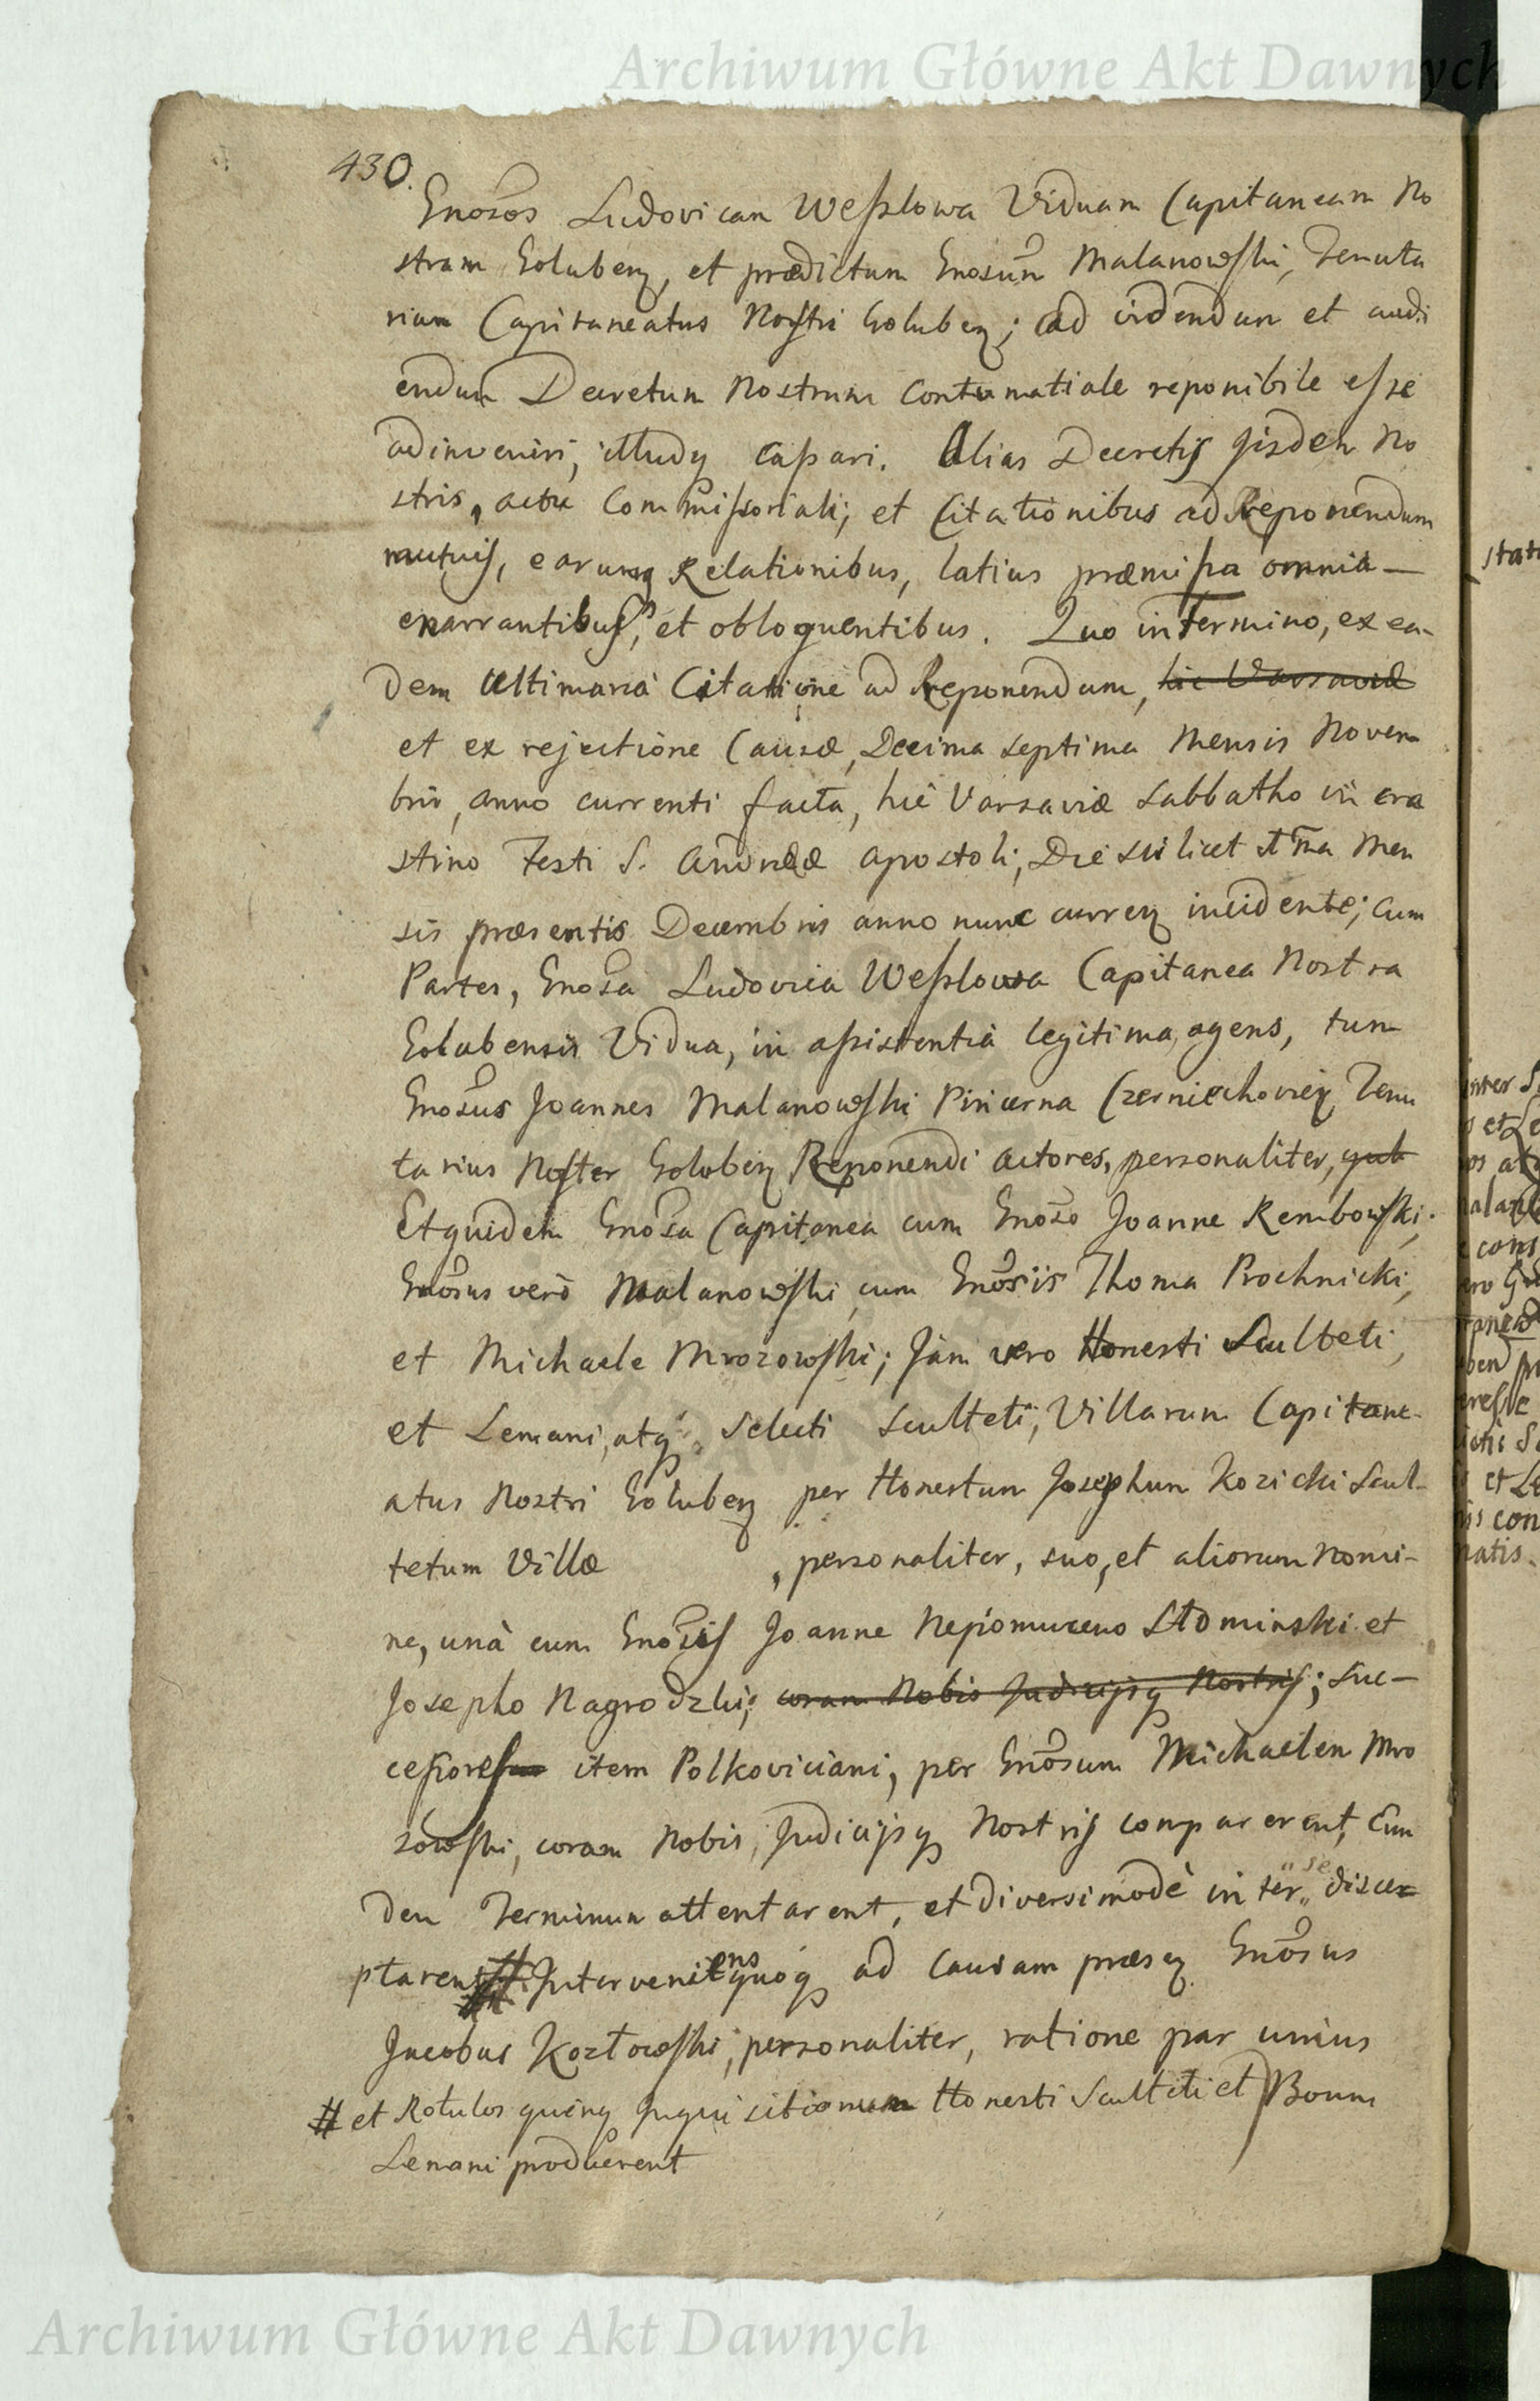 Archiwum Główne Akt Dawnych
430.
Gnosos Ludovicam Weſslowa Viduam Capitaneam No
stram Goluben, et prædictum Gnosum Malanowſki, Tenuta
rium Capitaneatus Noſtri Goluben; ad videndum et audi
endum Decretum Nostrum Contumatiale reponibile eſse
adinveniri, illudq caſsari. Alias Decretis ijsdem No
stris, actu Commiſsoriali, et Citationibus ad Reponendum
mutuis, earumq Relationibus, latius præmiſsa omnia —
enarrantibus, et obloquentibus. Quo in Termino, ex ea-
dem Ultimaria Citatione ad Reponendum, hic Varsaviæ
et ex rejectione Causæ, Decima septima Mensis Novem
bris, anno currenti facta, hic Varsaviæ Sabbatho in cra
stino Festi S. Andreæ Apostoli, Die scilicet 1ma Men
sis præsentis Decembris anno nunc curren incidente; cum
Partes, Gnosa Ludovica Weſslowa Capitanea Nostra
Golubensis Vidua, in aſsistentia legitima agens, tum
Gnosus Joannes Malanowſki Pincerna Czerniechovien Tenu
tarius Noſter Goluben Reponendi Actores, personaliter,
Et quidem Gnosa Capitanea cum Gnoso Joanne Rembowſki,
Gnosus verò Malanowſki cum Gnosiis Thoma Prochnicki,
et Michaele Mrozowſki; Jam vero Honesti Sculteti,
et Lemani, atq Selecti Sculteti, Villarum Capitane-
atus Nostri Goluben per Honestum Josephum Kozicki Scul-
tetum Villæ , personaliter, suo, et aliorum Nomi-
ne, unà cum Gnosis Joanne Nepomuceno Słominski et
Josepho Nagrodzki, coram Nobis Judicijsq Nostris; Suc-
ceſsores item Polkoviciani, per Gnosum Michaelem Mro
zowſki, coram Nobis, Judicijsq Nostris comparerent, Eun
dem Terminum attentarent, et diversimodè inter se discee
ptarent # Interveniens quoq ad Causam præsen Gnosus
Jacobus Kozłowſki, personaliter, ratione par unius
Boum
# et Rotulos quinq Inquisitionum Honesti Sculteti et
Lemani producerent
Archiwum Główne Akt Dawnych